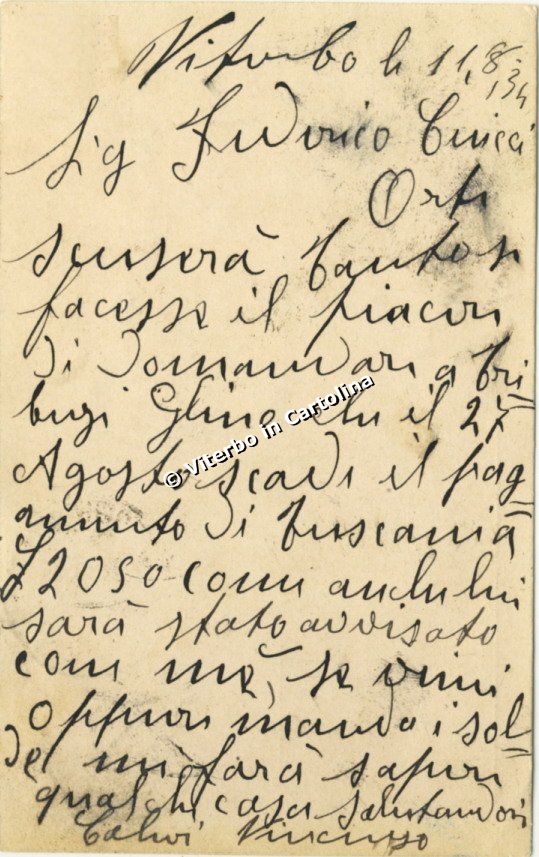 Viterbo li 11.8.
134
Sig Federico Ciucci
Orte
scuserà tanto se
facesse il piacere
di domandare a Tri
buzi che il 27
Agosto scade il pag
amento di Tuscania
£2050 come anche lui
sarà stato avvisato
come mè, se viene
oppure manda i sol
de mi farà sapere
qualche cosa salutandovi
Calvi Vincenzo
© Viterbo in Cartolina